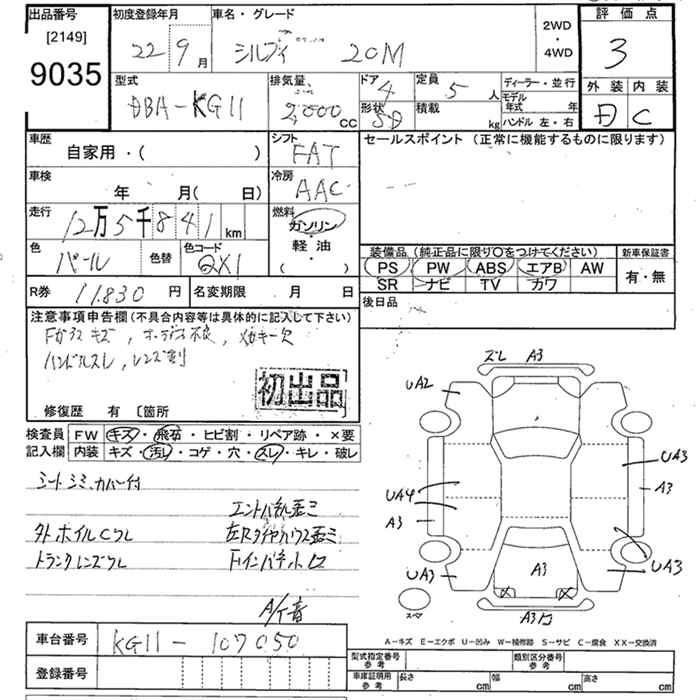 出品番号
[2149]
9035
初度登録年月
22 9月
車名・グレード
シルフィ 20M
2WD
・
4WD
評価点
3
型式
DBA-KG11
排気量
2,000 CC
ドア
4
形状
SD
定員
5 人
積載
kg
ディーラー・並行
モデル年式 年
ハンドル 左・右
外装 内装
D C
車歴
自家用・( )
シフト
FAT
車検
年 月( 日)
冷房
AAC
走行
12万5千841 km
燃料
ガソリン
・
軽油
( )
色
パール
色替
色コード
QX1
R券 11,830 円
名変期限 月 日
セールスポイント (正常に機能するものに限ります)
装備品 (純正品に限り○をつけてください)
PS PW ABS エアB AW
SR ナビ TV カワ
新車保証書
有・無
後日品
注意事項申告欄(不具合内容等は具体的に記入して下さい)
Fガラスキズ, オーディオ不良, メカキー欠
ハンドルスレ, レンズ割
初出品
修復歴 有 〔箇所
検査員記入欄
FW キズ・飛石・ヒビ割・リペア跡・×要
内装 キズ・汚レ・コゲ・穴・スレ・キレ・破レ
シートシミ、カバー付
エンドパネル歪ミ
外 ホイルCワレ
左Rタイヤハウス歪ミ
トランクレンズワレ
A/T音
車台番号 KG11-107050
登録番号
ズレ A3
UA2
UA3
A3
UA4
A3
UA3
UA3
A3
X X
A3
スペア
A-キズ E-エクボ U-凹み W-補修跡 S-サビ C-腐食 XX-交換済
型式指定番号 参考
類別区分番号 参考
車庫証明用 参考
長さ cm
幅 cm
高さ cm